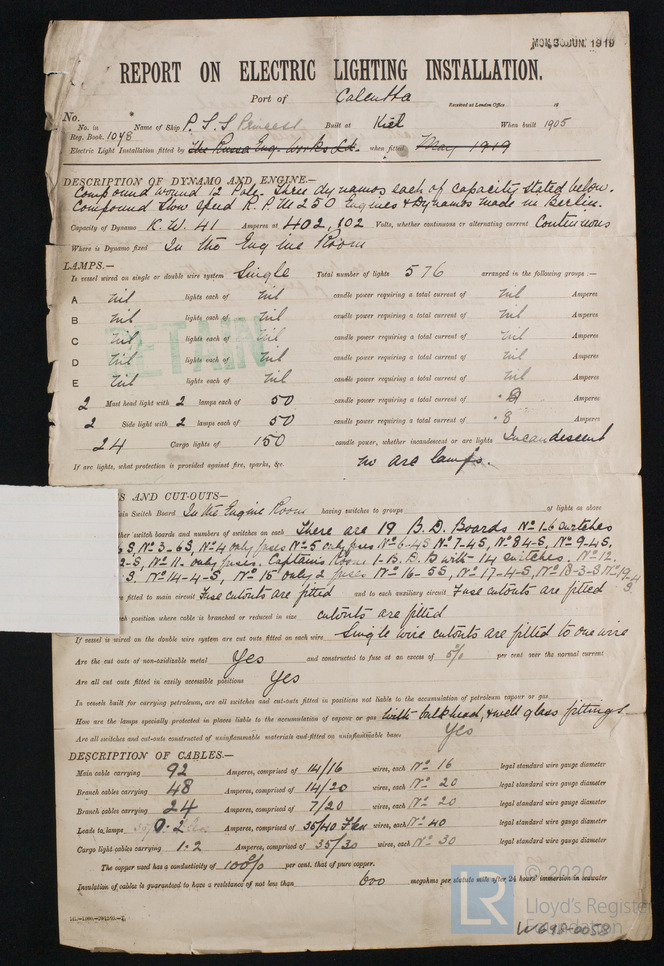 MON. 30 JUN. 1919
REPORT ON ELECTRIC LIGHTING INSTALLATION.
Port of Calcutta Received at London Office 19
No.
No. in Name of Ship P. S. S Princess Built at Kiel When built 1905
Reg. Book. 1048
Electric Light Installation fitted by The Russa Eng. Works Ld. when fitted May 1919
DESCRIPTION OF DYNAMO AND ENGINE.—
Compound wound 12 Pole. Three dynamos each of capacity stated below.
Compound Slow speed R.P.M 250 Engines & Dynamos made in Berlin.
Capacity of Dynamo K. W. 41 Amperes at 402, 102 Volts, whether continuous or alternating current Continuous
Where is Dynamo fixed In the Engine Room
LAMPS.—
Is vessel wired on single or double wire system Single Total number of lights 576 arranged in the following groups :—
A nil lights each of nil candle power requiring a total current of nil Amperes
B nil lights each of nil candle power requiring a total current of nil Amperes
C nil lights each of nil candle power requiring a total current of nil Amperes
D nil lights each of nil candle power requiring a total current of nil Amperes
E nil lights each of nil candle power requiring a total current of nil Amperes
RETAIN
2 Mast head light with 2 lamps each of 50 candle power requiring a total current of Amperes
2 Side light with 2 lamps each of 50 candle power requiring a total current of .8 Amperes
24 Cargo lights of 150 candle power, whether incandescent or arc lights Incandescent
If arc lights, what protection is provided against fire, sparks, &c. no arc lamps.
S AND CUT-OUTS—
ain Switch Board In the Engine Room having switches to groups of lights as above
ther switch boards and numbers of switches on each There are 19 B. D. Boards No 1-6 switches
6 S, No 3-6 S, No 4 only fuses No 5 only fuses No 6-4 S No 7-4 S, No 8 4-S, No 9-4 S,
2-S, No 11. only fuses. Captains Room 1-B. D. B with 14 switches. No 12.
3. No 14-4-S, No 15 only 2 fuses No 16-5 S, No 17-4-S, No 18-3-S No 19-4 S.
re fitted to main circuit Fuse cutouts are fitted and to each auxiliary circuit Fuse cutouts are fitted
ch position where cable is branched or reduced in size cutouts are fitted
If vessel is wired on the double wire system are cut outs fitted on each wire Single wire cutouts are fitted to one wire
Are the cut outs of non-oxidizable metal Yes and constructed to fuse at an excess of 5% per cent over the normal current
Are all cut outs fitted in easily accessible positions Yes
In vessels built for carrying petroleum, are all switches and cut-outs fitted in positions not liable to the accumulation of petroleum vapour or gas
How are the lamps specially protected in places liable to the accumulation of vapour or gas with bulkhead, & well glass fittings
Are all switches and cut-outs constructed of uninflammable materials and fitted on uninflammable bases Yes
DESCRIPTION OF CABLES.—
Main cable carrying 92 Amperes, comprised of 14/16 wires, each No 16 legal standard wire gauge diameter
Branch cables carrying 48 Amperes, comprised of 14/20 wires, each No 20 legal standard wire gauge diameter
Branch cables carrying 24 Amperes, comprised of 7/20 wires, each No 20 legal standard wire gauge diameter
Leads to lamps 0.2 Amperes, comprised of 35/40 Flex wires, each No 40 legal standard wire gauge diameter
Cargo light cables carrying 1.2 Amperes, comprised of 35/30 wires, each No 30 legal standard wire gauge diameter
The copper used has a conductivity of 100% per cent. that of pure copper.
Insulation of cables is guaranteed to have a resistance of not less than 600 megohms per statute mile after 24 hours' immersion in seawater
© 2020
LR Lloyd's Register
Foundation
W698-0058